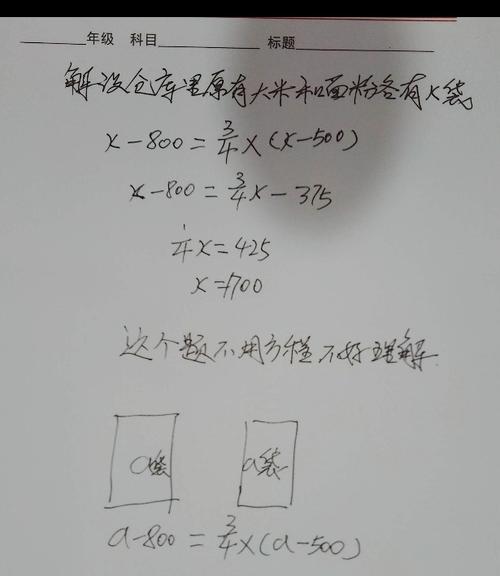 年级 科目 标题
解设仓库里原有大米和面粉各有x袋
x-800=3/4×(x-500)
x-800=3/4x-375
1/4x=425
x=1700
这个题不用方程不好理解
a袋 a袋
a-800=3/4×(a-500)